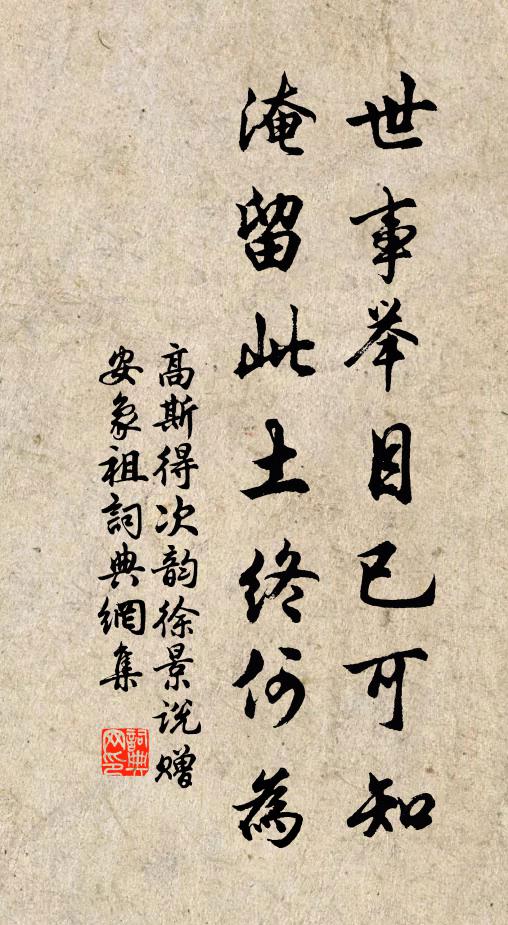 世事举目已可知
淹留此土终何為
高斯得次韵徐景说赠
安象祖詞典網集
詞典网印